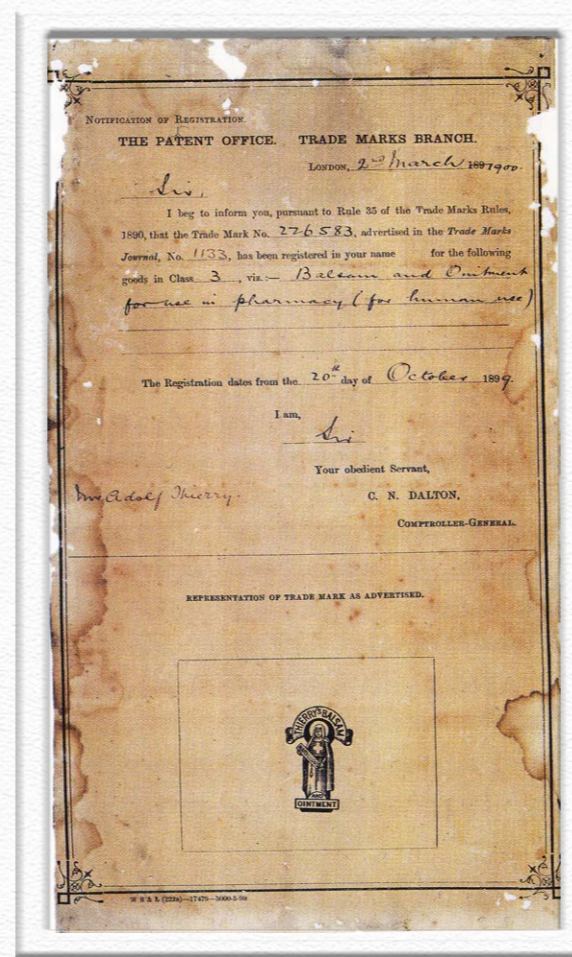 NOTIFICATION OF REGISTRATION.
THE PATENT OFFICE. TRADE MARKS BRANCH.
LONDON, 2nd March 1897 1900.
Sir,
I beg to inform you, pursuant to Rule 35 of the Trade Marks Rules,
1890, that the Trade Mark No. 226583, advertised in the Trade Marks
Journal, No. 1133, has been registered in your name for the following
goods in Class 3, viz:— Balsam and Ointment
for use in pharmacy (for human use)
The Registration dates from the 20th day of October 1899.
I am,
Sir
Your obedient Servant,
Mr Adolf Thierry.
C. N. DALTON,
COMPTROLLER-GENERAL.
REPRESENTATION OF TRADE MARK AS ADVERTISED.
THIERRY'S BALSAM
AND
OINTMENT
W B & L (222s)—17479—5000-5-99